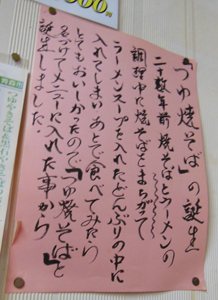 「つゆ焼そば」の誕生
二十数年前焼そばとラーメンの
調理中に焼そばをまちがって
ラーメンスープを入れたどんぶりの中に
入れてしまいあとで食べてみたら
とてもおいしかったので「つゆ焼そば」と
名づけてメニューに入れた事から
誕生しました。